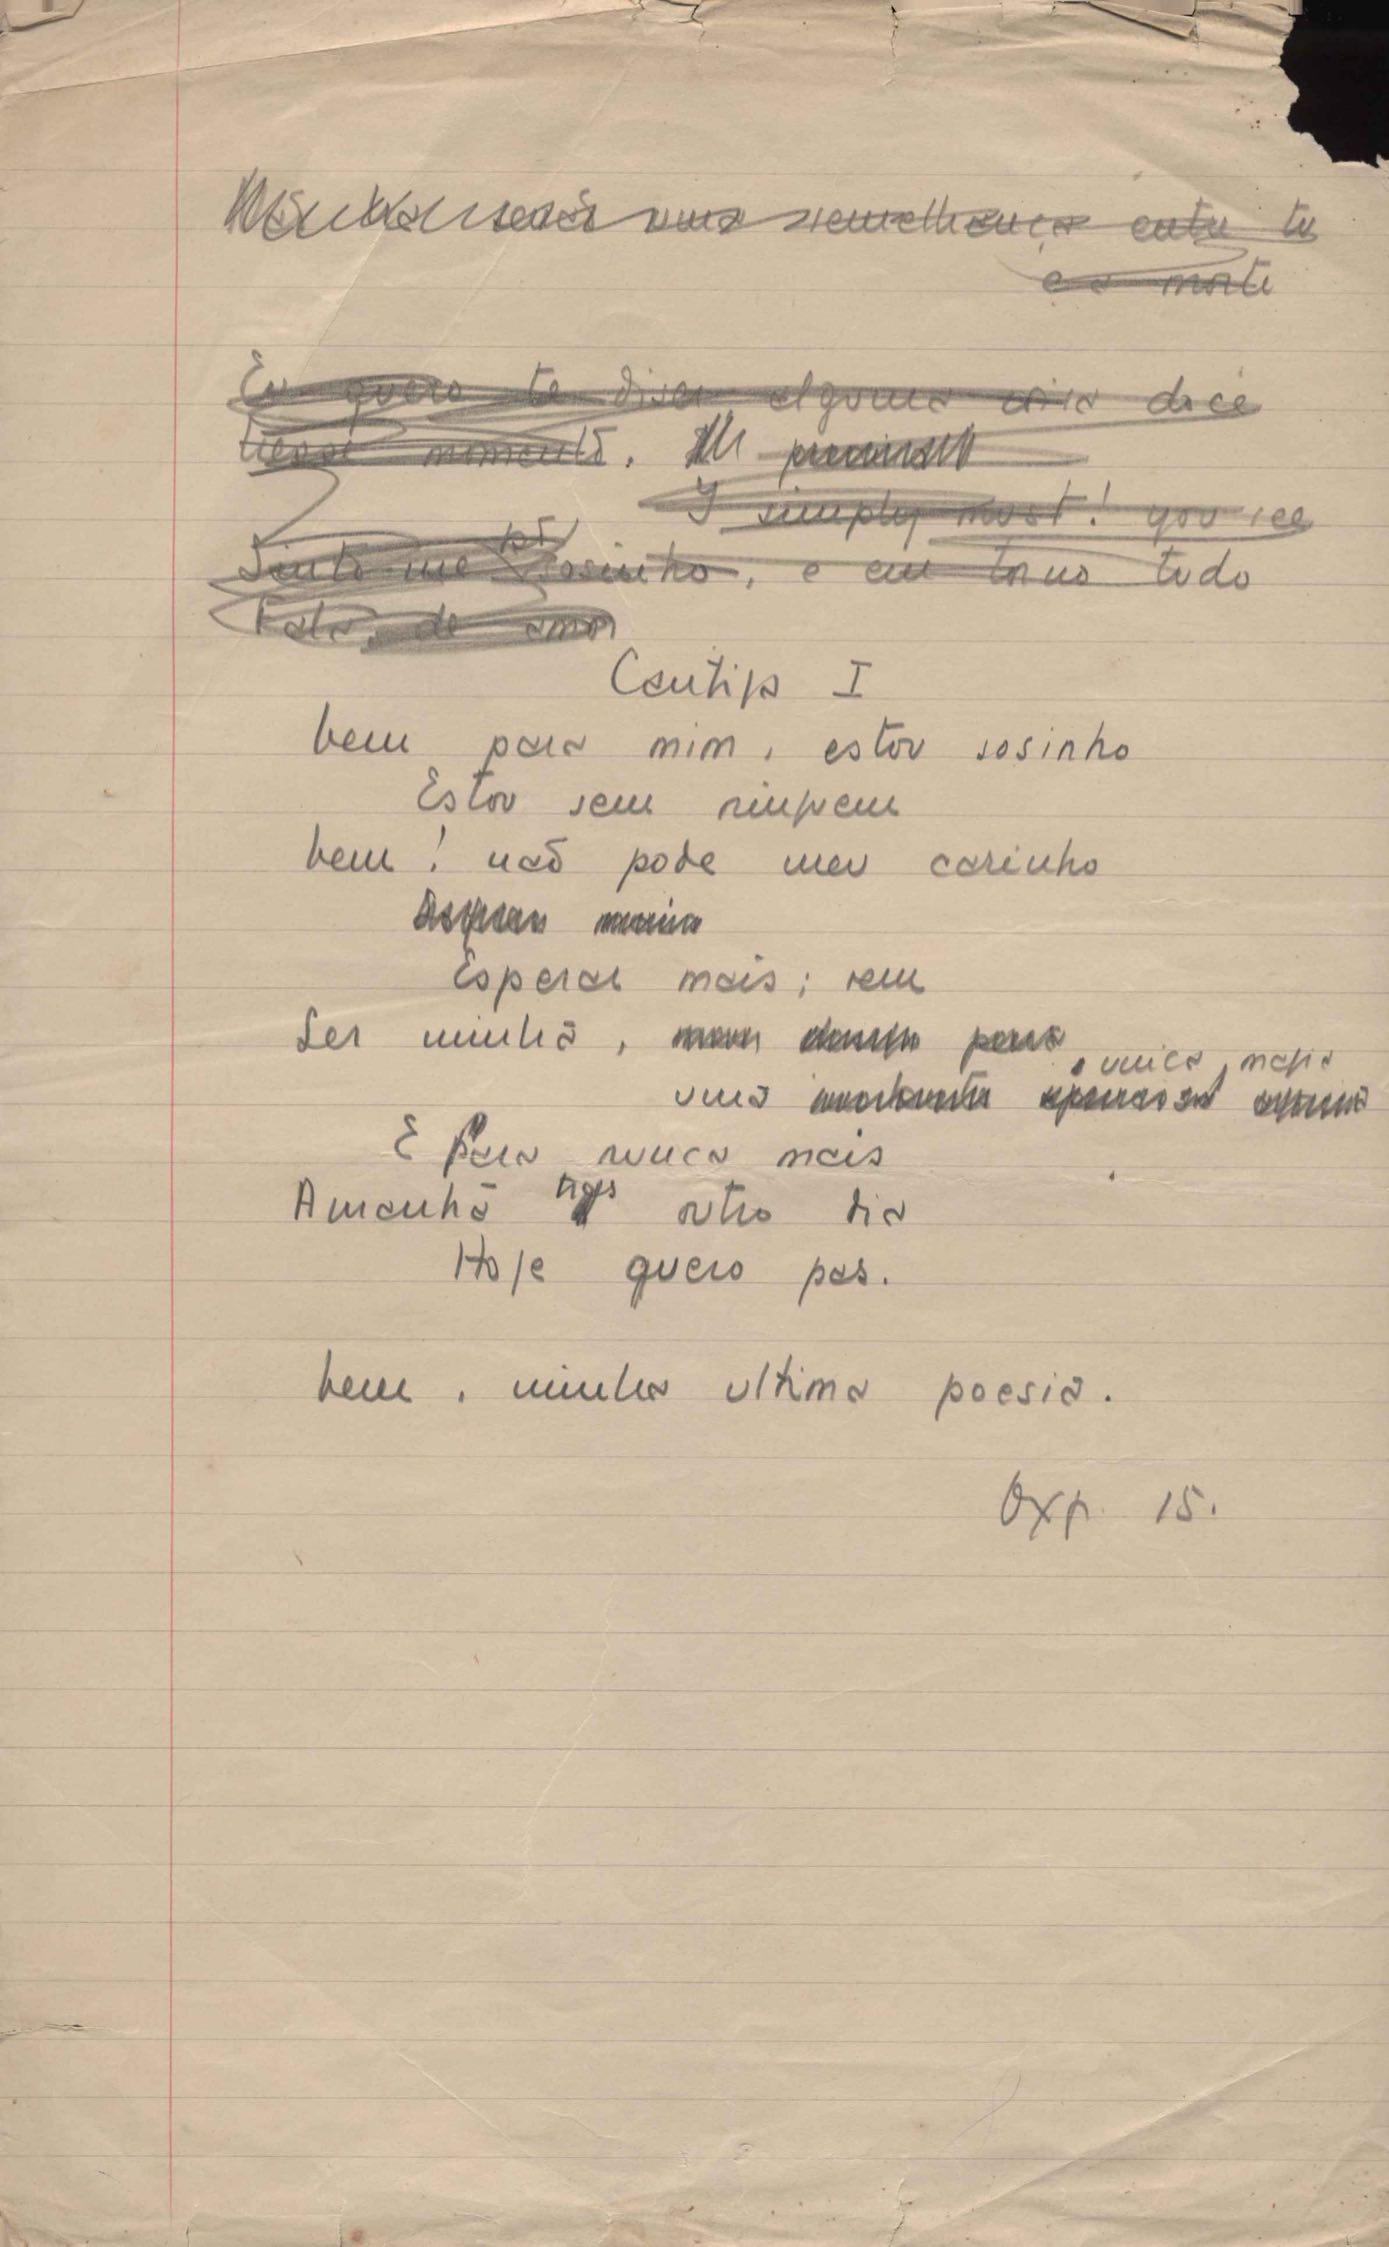 uma semelhança entre tu
e a morte
Eu quero te diser alguma coisa doce
nesse momento.
I simply must! you see
Sinto me só sosinho, e em torno tudo
fala de amor
Cantiga I
Vem para mim, estou sosinho
Estou sem ninguem
Vem! naõ pode meu carinho
Esperar mais; vem
Ser minha,
uma unica, magia
E Para nunca mais
Amanhã traz outro dia
Hoje quero pas.
Vem, minha ultima poesia.
Oxf. 15.